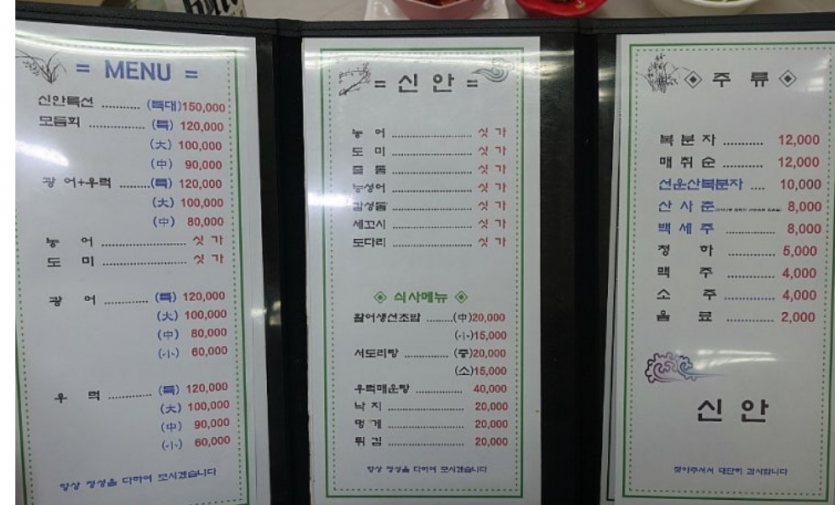 = MENU =
신안특선 .......... (특대)150,000
모듬회 .......... (특) 120,000
(大) 100,000
(中) 90,000
광어+우럭 .......(특) 120,000
(大) 100,000
(中) 80,000
농 어 ........................ 싯가
도 미 ........................ 싯가
광 어 ............ (특) 120,000
(大) 100,000
(中) 80,000
(小) 60,000
우 럭 ............ (특) 120,000
(大) 100,000
(中) 90,000
(小) 60,000
항상 정성을 다하여 모시겠습니다
= 신 안 =
농 어 ........................ 싯가
도 미 ........................ 싯가
줄 돔 ........................ 싯가
능성어 ........................ 싯가
감성돔 ........................ 싯가
세꼬시 ........................ 싯가
도다리 ........................ 싯가
◈ 식사메뉴 ◈
활어생선초밥 .......(中)20,000
(小)15,000
서더리탕 .......... (중)20,000
(소)15,000
우럭매운탕 .............. 40,000
낙 지 ........................ 20,000
멍 게 ........................ 20,000
튀 김 ........................ 20,000
항상 정성을 다하여 모시겠습니다
◈ 주 류 ◈
복 분 자 ........... 12,000
매 취 순 ........... 12,000
선운산복분자 .... 10,000
산 사 춘 8,000
백 세 주 ........... 8,000
청 하 ............ 5,000
맥 주 ............ 4,000
소 주 ............ 4,000
음 료 ............ 2,000
신 안
찾아주셔서 대단히 감사합니다